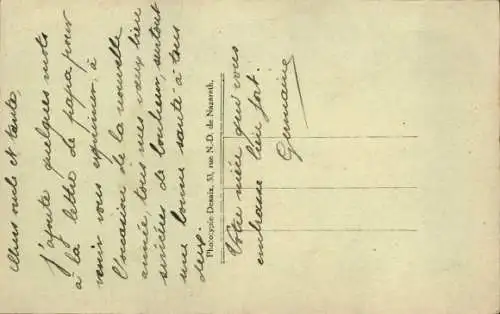 Chers oncle et tante,
J'ajoute quelques mots
à la lettre de papa pour
venir vous exprimer, à
l'occasion de la nouvelle
année, tous mes vœux bien
sincères de bonheur, surtout
une bonne santé à tous
deux.
Photocypie-Desaix, 33, rue N.-D. de Nazareth,
Votre nièce qui vous
embrasse bien fort.
Germaine